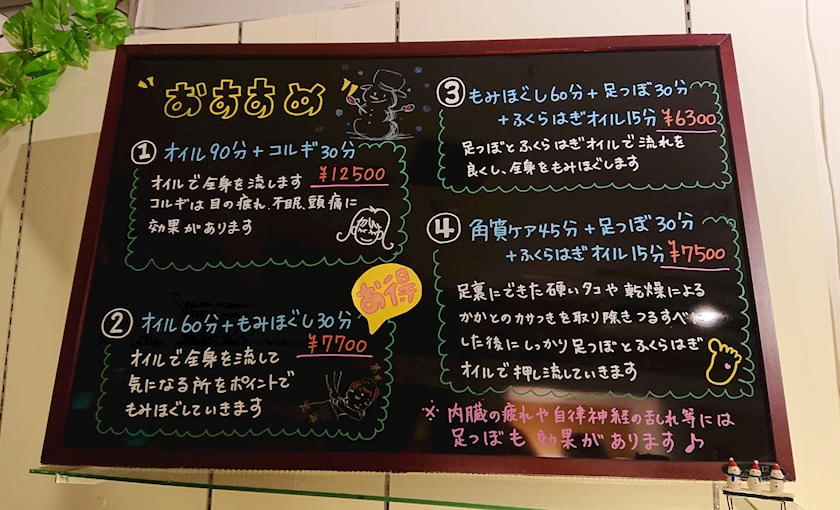 おすすめ
① オイル90分+コルギ30分
オイルで全身を流します ¥12500
コルギは目の疲れ、不眠、頭痛に
効果があります
お得
② オイル60分+もみほぐし30分
¥7700
オイルで全身を流して
気になる所をポイントで
もみほぐしていきます
③ もみほぐし60分+足つぼ30分
+ふくらはぎオイル15分 ¥6300
足つぼとふくらはぎオイルで流れを
良くし、全身をもみほぐします
④ 角質ケア45分+足つぼ30分
+ふくらはぎオイル15分 ¥7500
足裏にできた硬いタコや乾燥による
かかとのカサつきを取り除きつるすべに
した後にしっかり足つぼとふくらはぎ
オイルで押し流していきます
※ 内臓の疲れや自律神経の乱れ等には
足つぼも効果があります♪